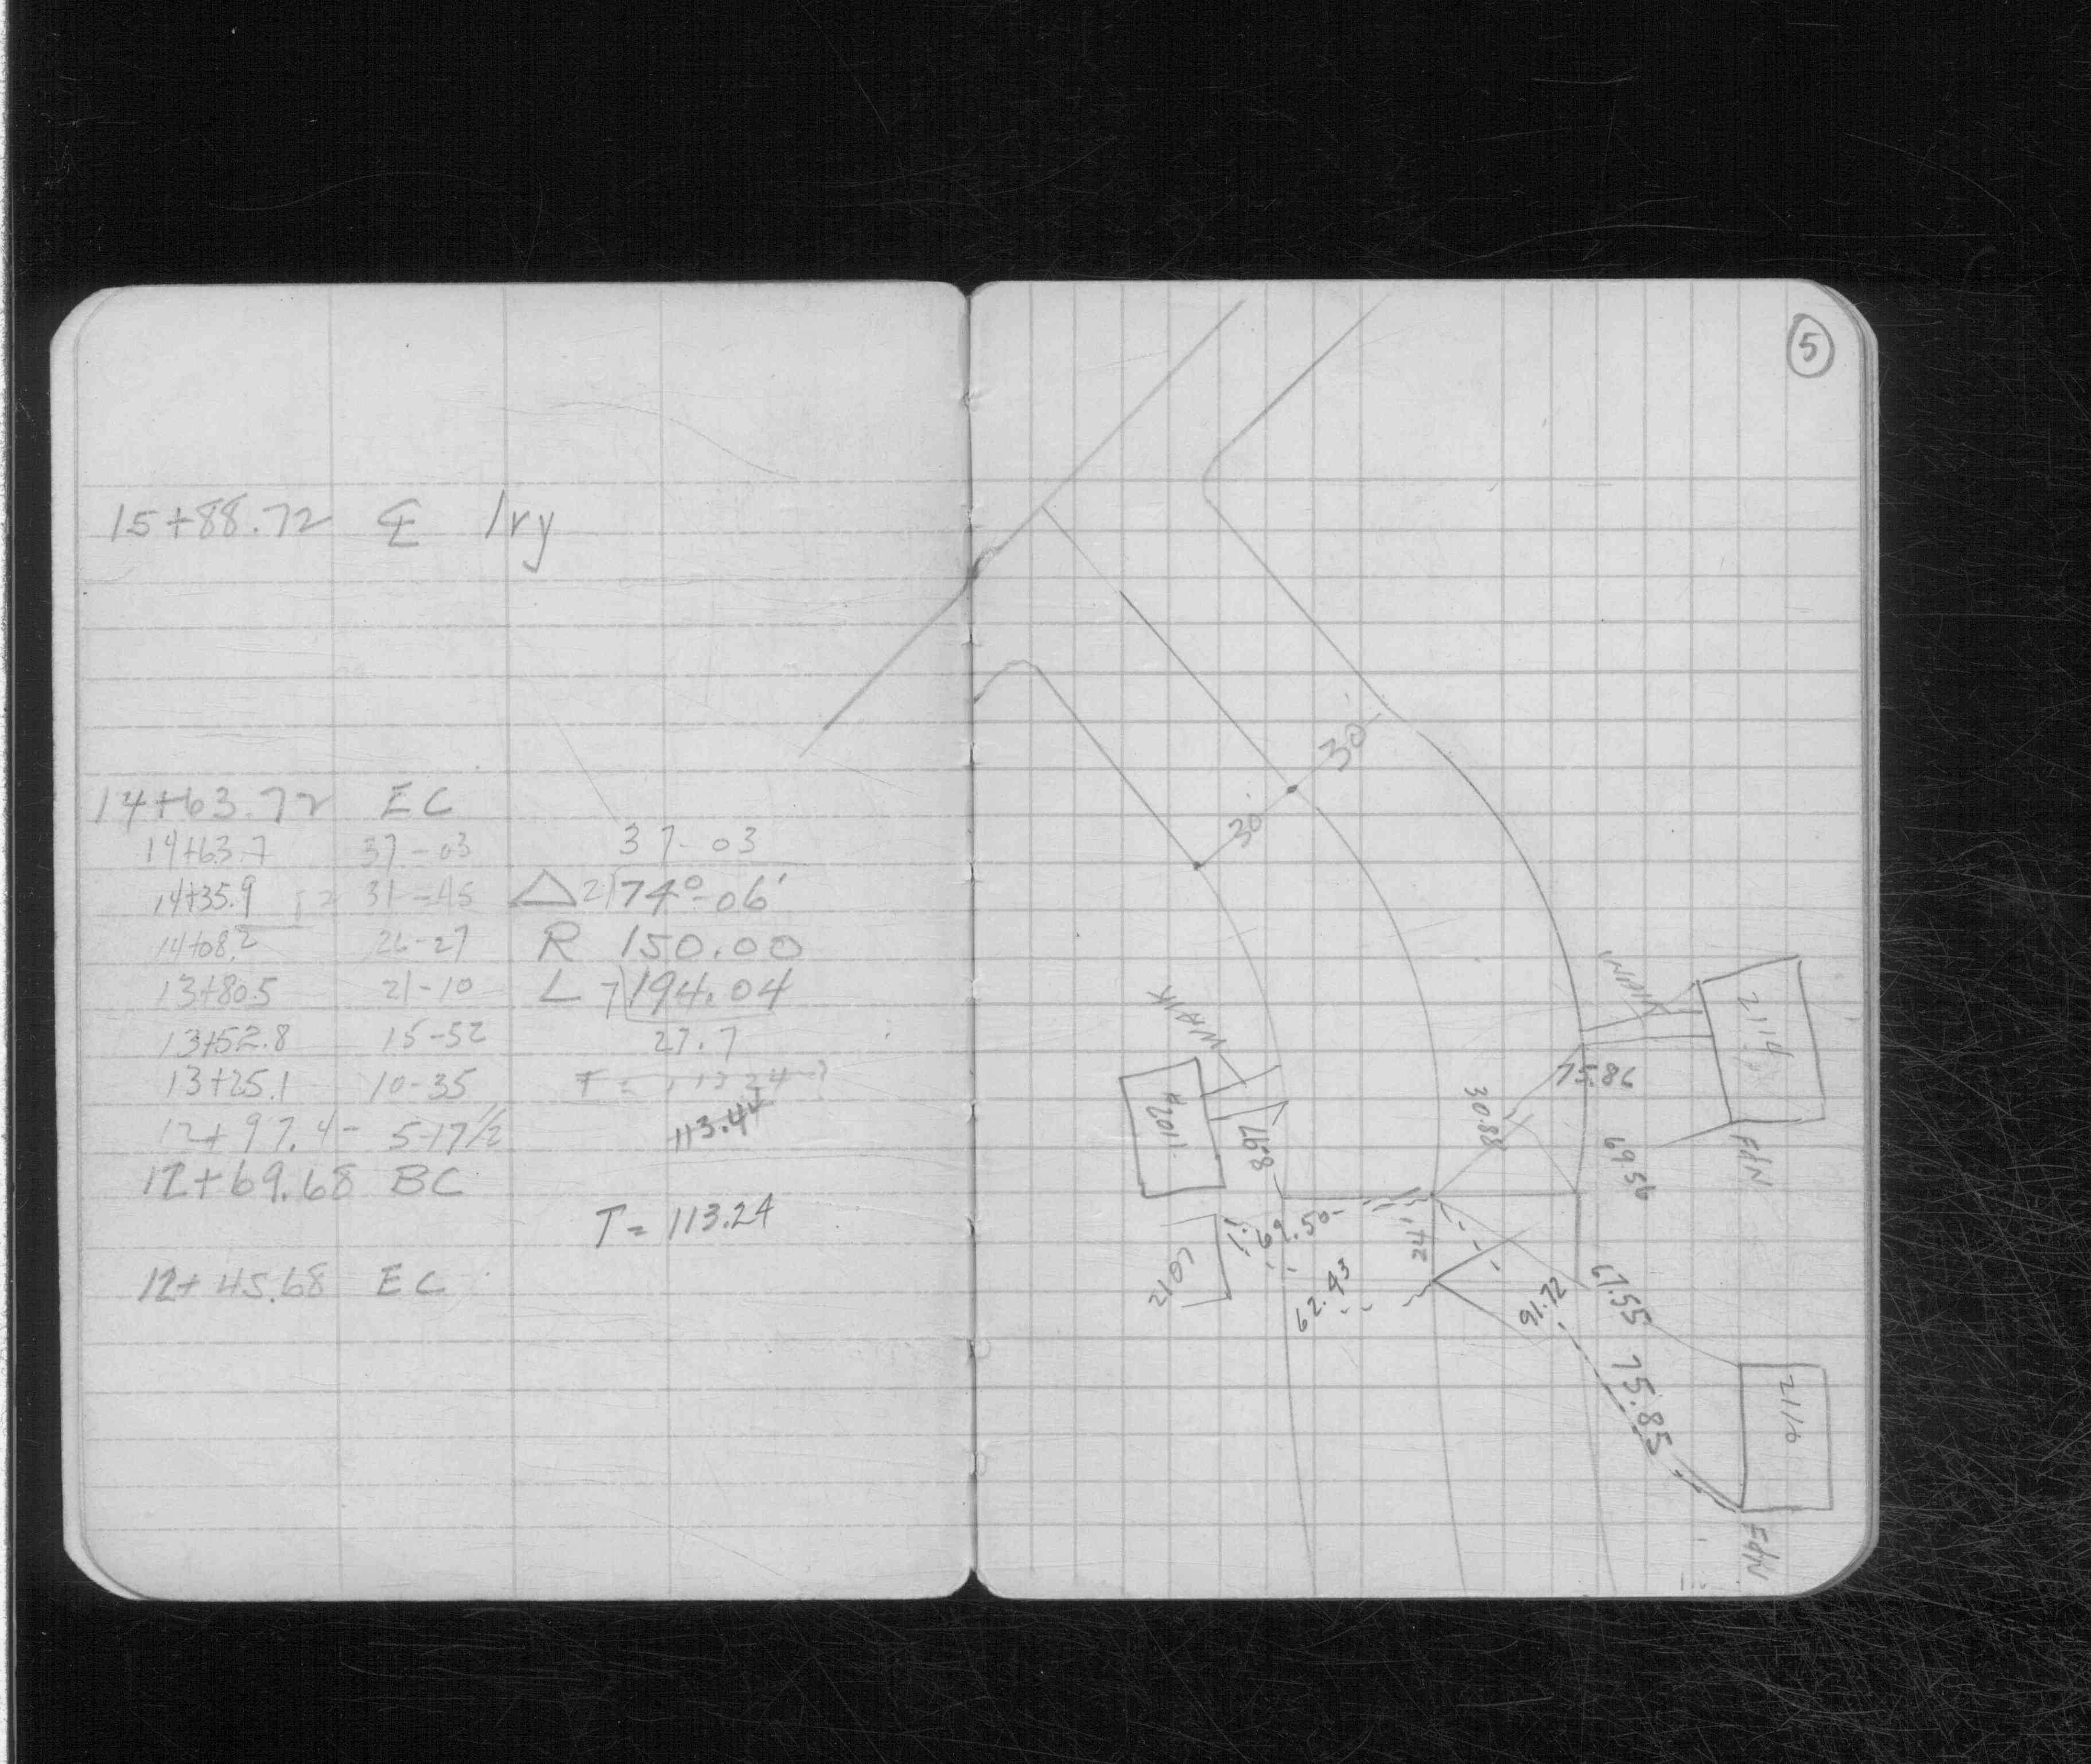 15+88.72 ℄ Ivy
14+63.72 EC
14+63.7 37-03 37-03
14+35.9 31-45 Δ 2)74°-06'
14+08.2 26-27 R 150.00
13+80.5 21-10 L 7)194.04
13+52.8 15-52 27.7
13+25.1 10-35 T = 113.24
113.44
12+97.4- 5-17 1/2
12+69.68 BC
T = 113.24
12+45.68 EC
5
30'
30'
WALK
2114
WALK
75.86
30.88
69.56
FdN
69.50
24'
2107
62.43
91.72
67.55
75.85
2116
FdN